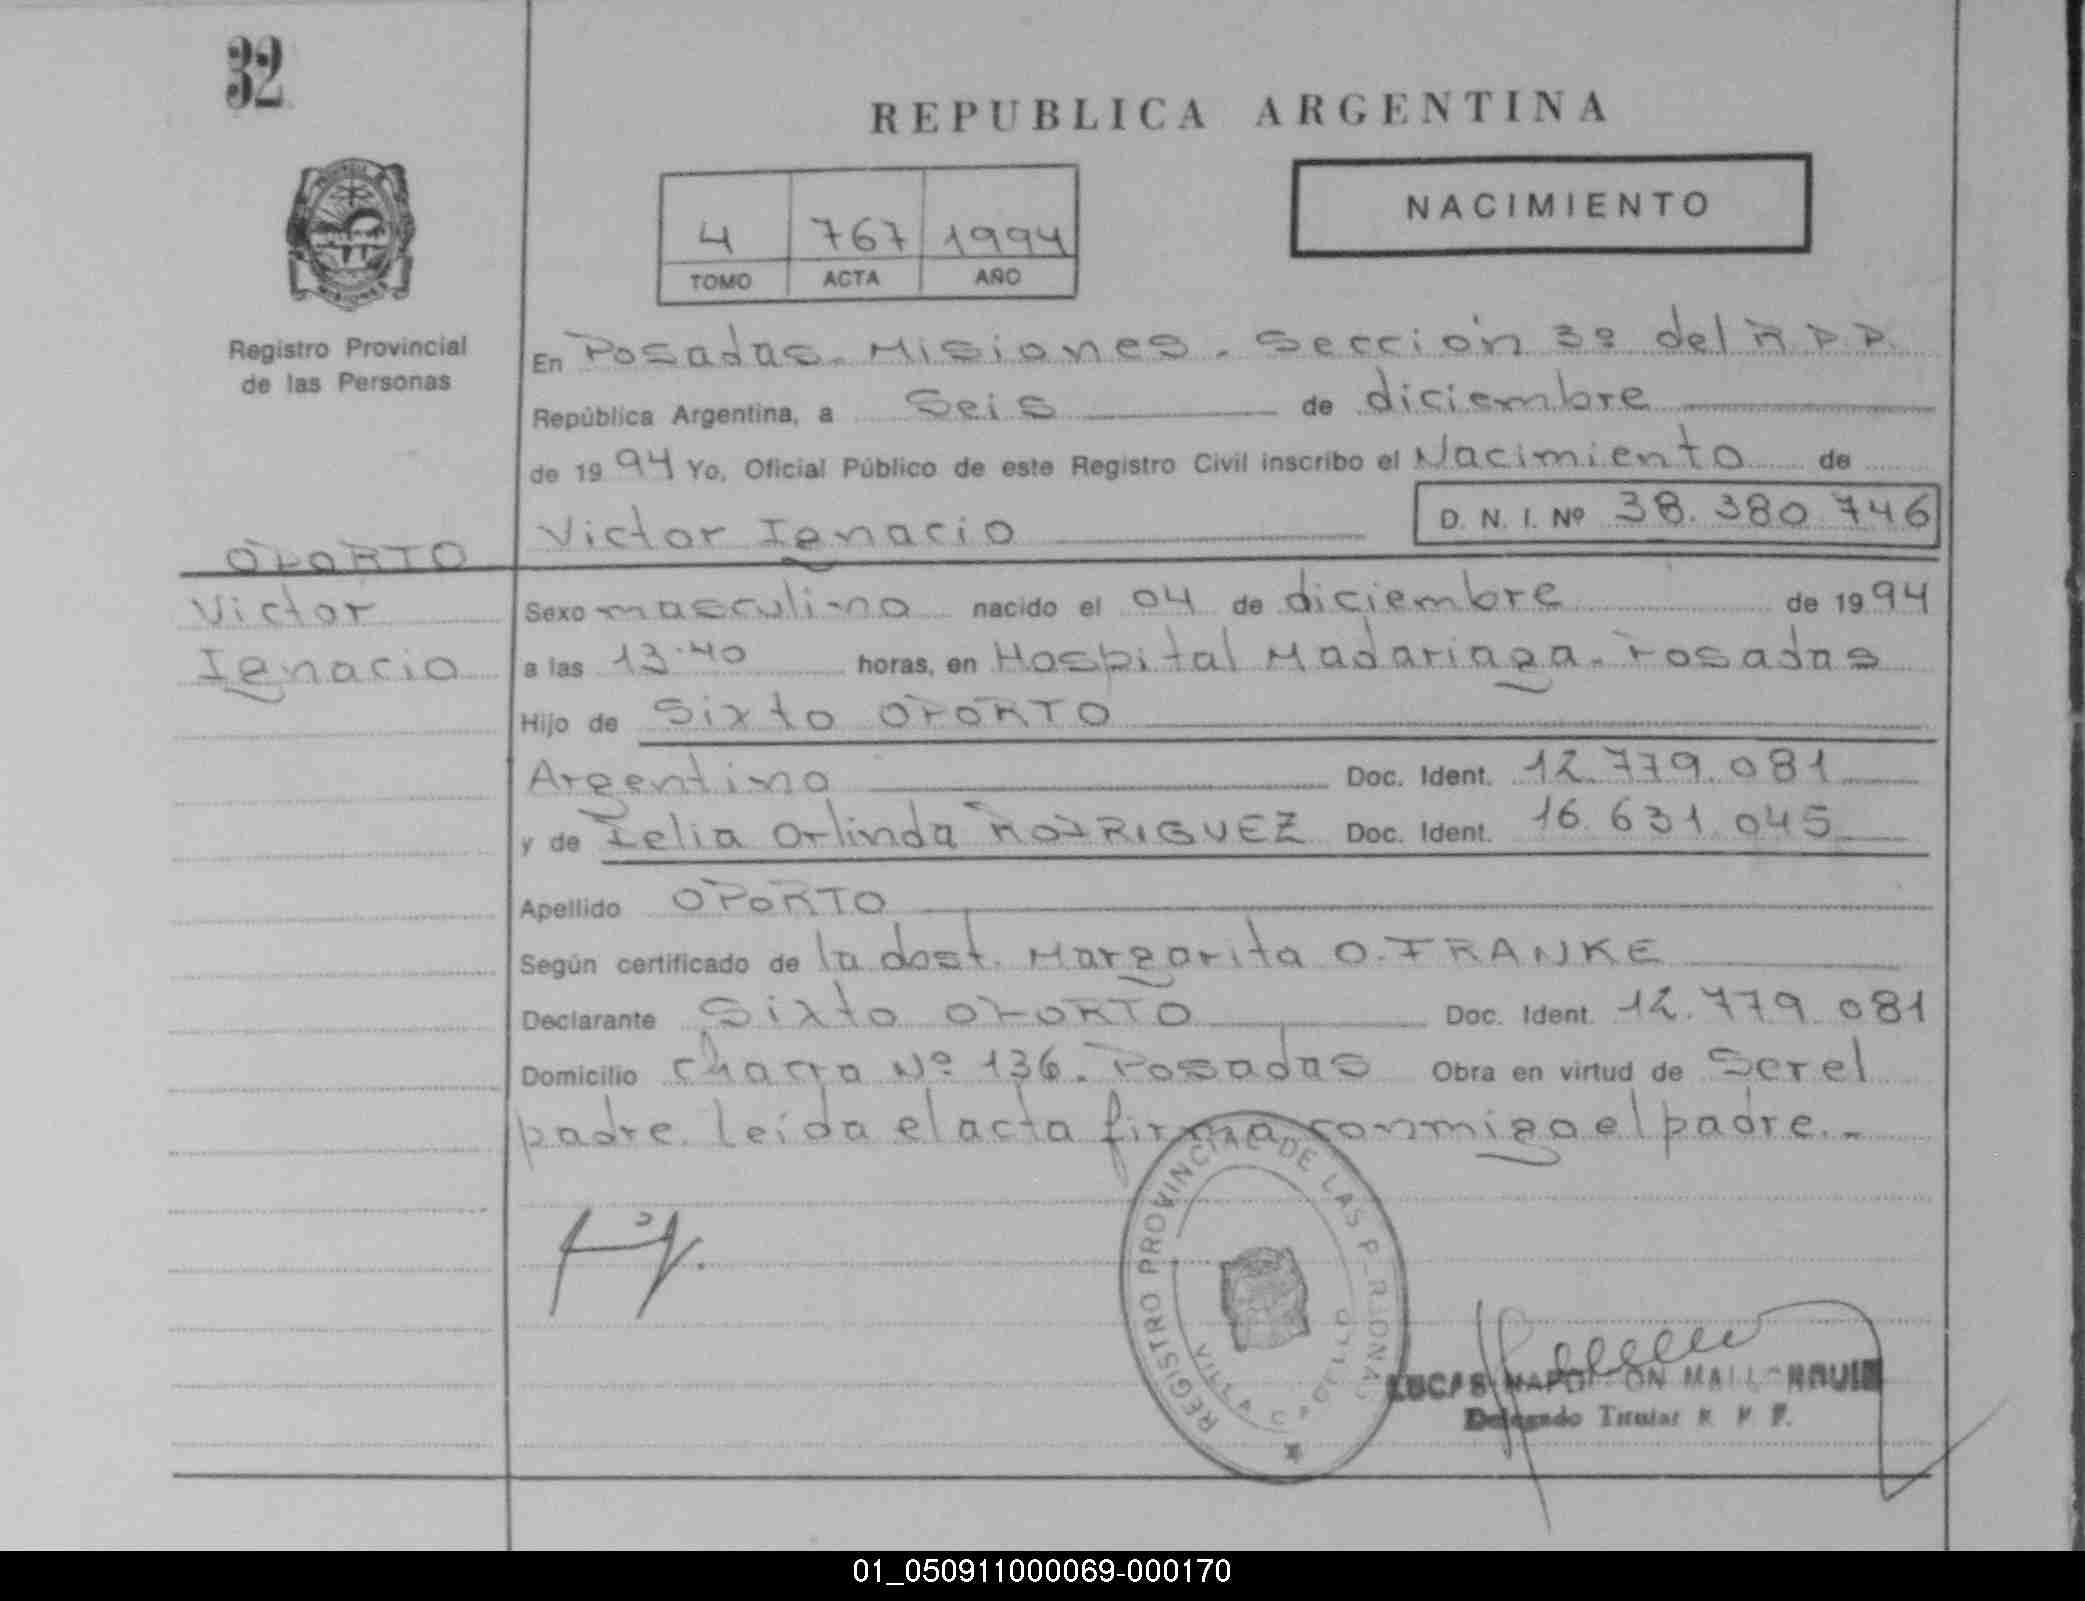 32
REPUBLICA ARGENTINA
NACIMIENTO
4 767 1994
TOMO ACTA AÑO
Registro Provincial
de las Personas
En Posadas. Misiones. Sección 3º del R.P.P.
República Argentina, a Seis de diciembre
de 1994 Yo, Oficial Público de este Registro Civil inscribo el Nacimiento de
Victor Ignacio D. N. I. Nº 38.380.746
OPORTO
Victor
Ignacio
Sexo masculino nacido el 04 de diciembre de 1994
a las 13.40 horas, en Hospital Madariaga. Posadas
Hijo de Sixto OPORTO
Argentino Doc. Ident. 12.779.081
y de Felia Orlinda RODRIGUEZ Doc. Ident. 16.631.045
Apellido OPORTO
Según certificado de la dost. Margarita O. FRANKE
Declarante Sixto OPORTO Doc. Ident. 12.779.081
Domicilio Chacra Nº 136. Posadas Obra en virtud de Ser el
padre. Leída el acta firma conmigo el padre.-
REGISTRO PROVINCIAL DE LAS
LUCAS NAPOLEON
Delegado Titular R. P. P.
01_050911000069-000170